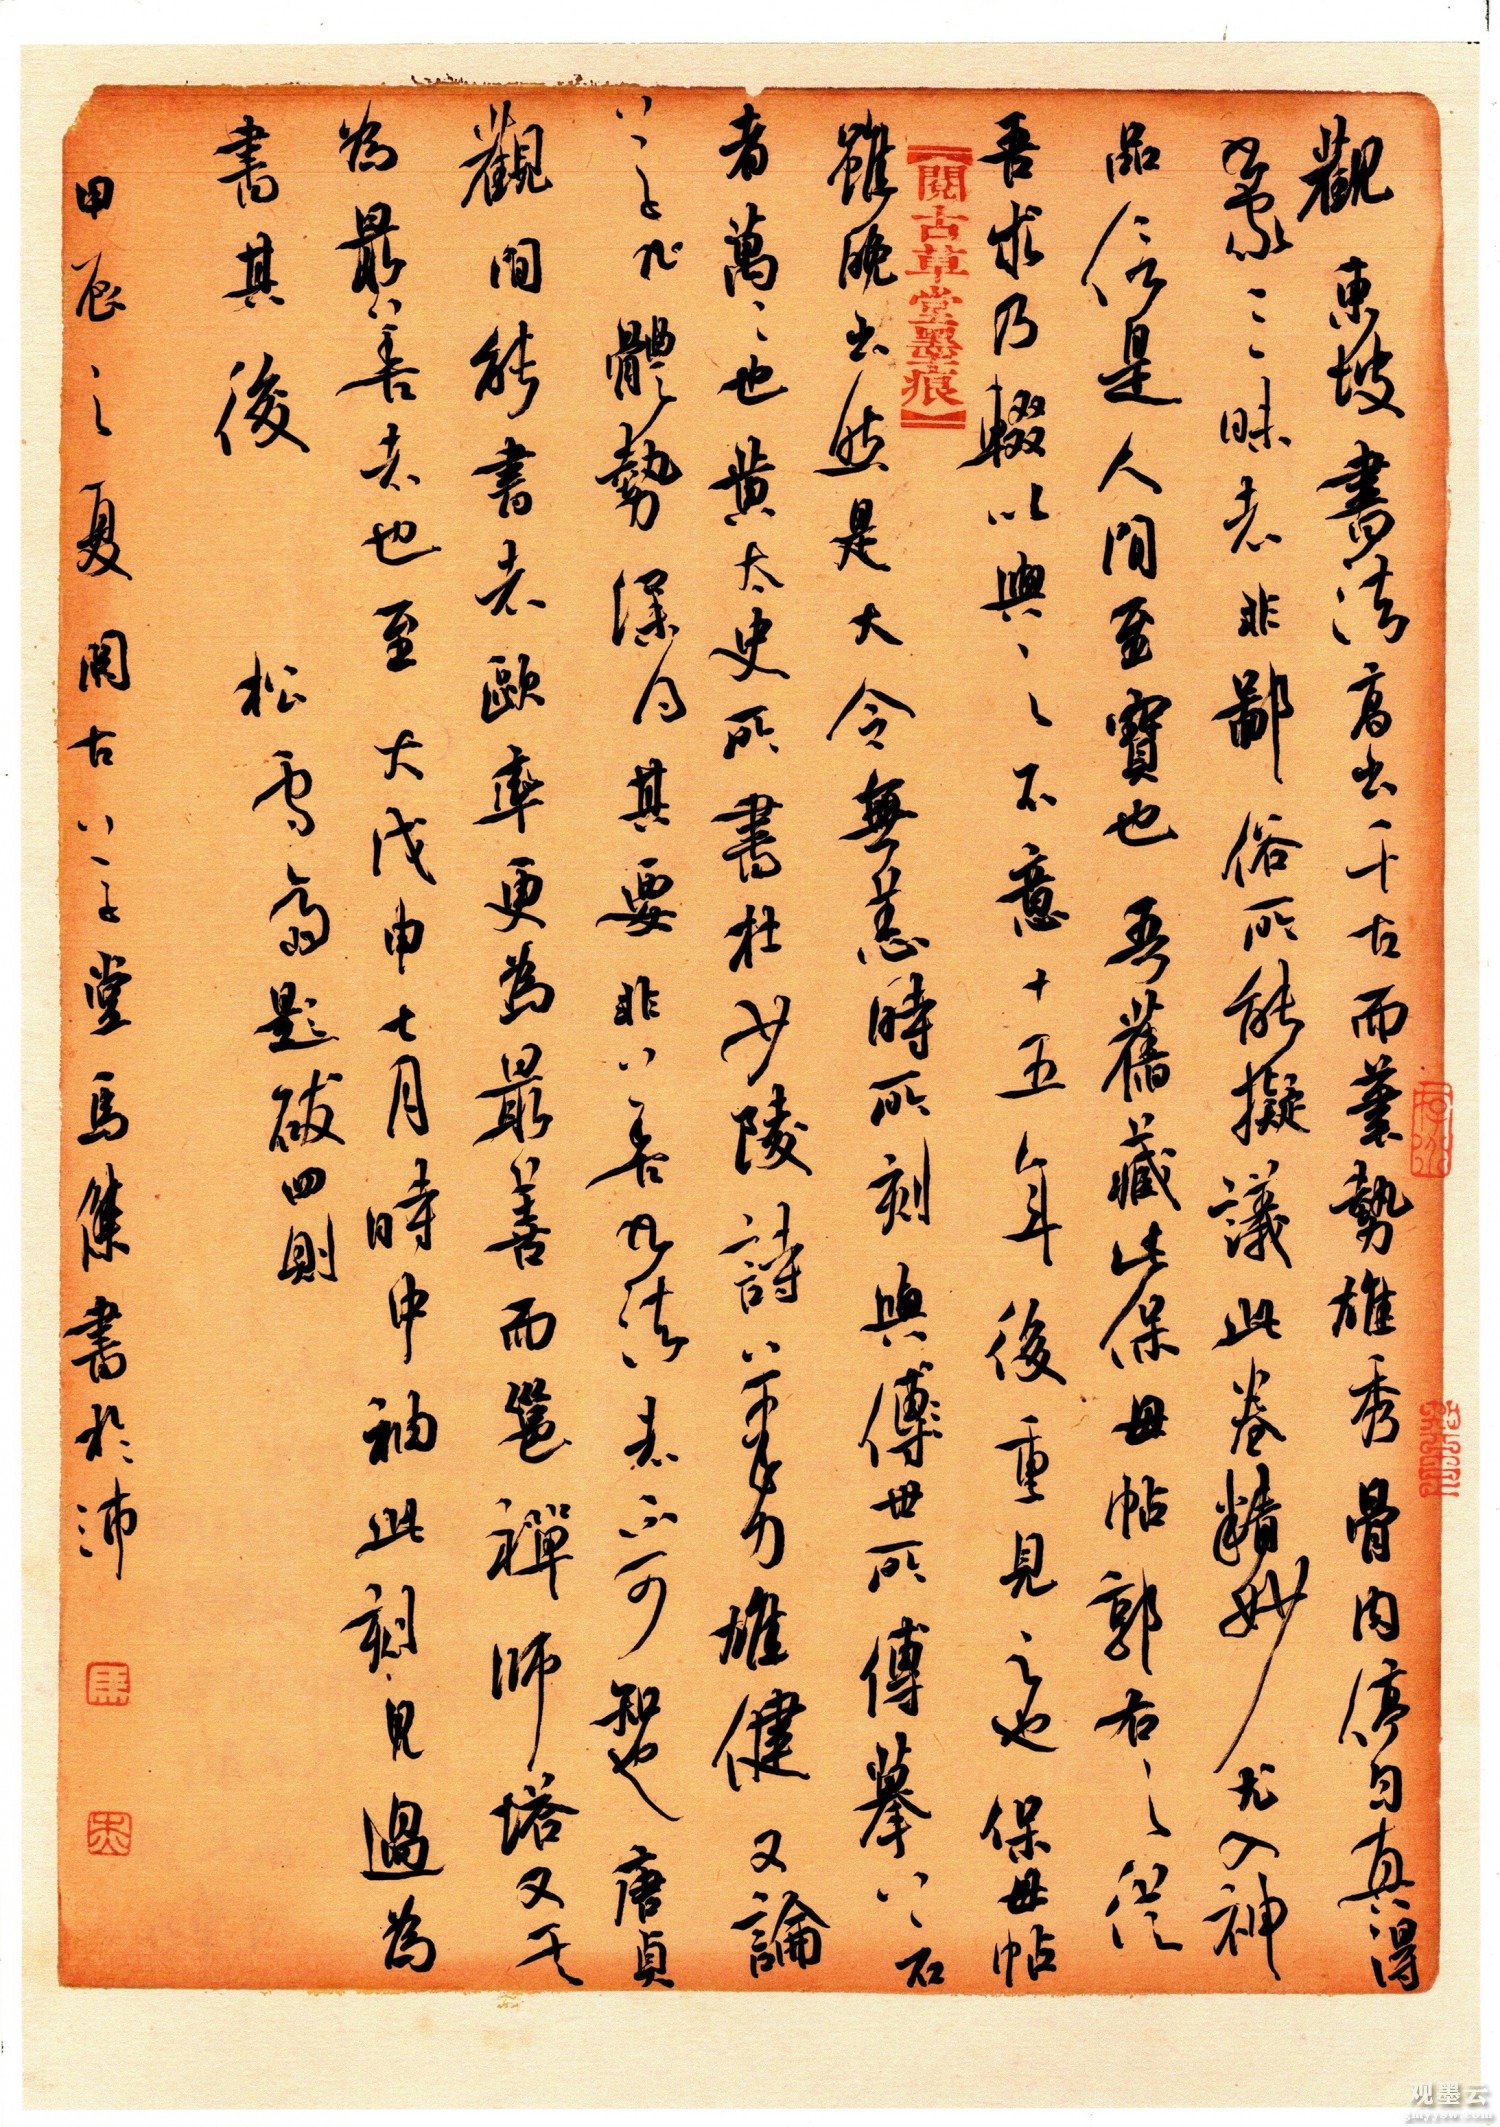 觀東坡書法高出千古而筆勢雄秀骨肉停勻真得
篆三昧者非鄙俗所能擬議此卷精妙尤入神
品信是人間至寶也吾舊藏此保母帖郭右之從
吾求乃輟以與之不意十五年後重見之也保母帖
雖晚出然是大令無恙時所刻與傳世所傳摹石
者萬萬也黃太史所書杜少陵詩筆力雄健又論
草九體勢深得其要非善九法者不可智也唐貞
觀間能書者歐率更為最善而邕禪師塔又其
為最善者也至大戊申七月時中袖此刻見過為
書其後
松雪齋題跋四則
甲辰之夏閱古草堂馬集書於沛
閱古草堂墨痕
观墨云